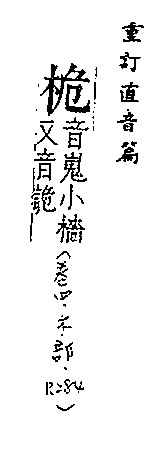 重訂直音篇
桅音嵬小檣
又音詭
(卷四.木部.
R284)